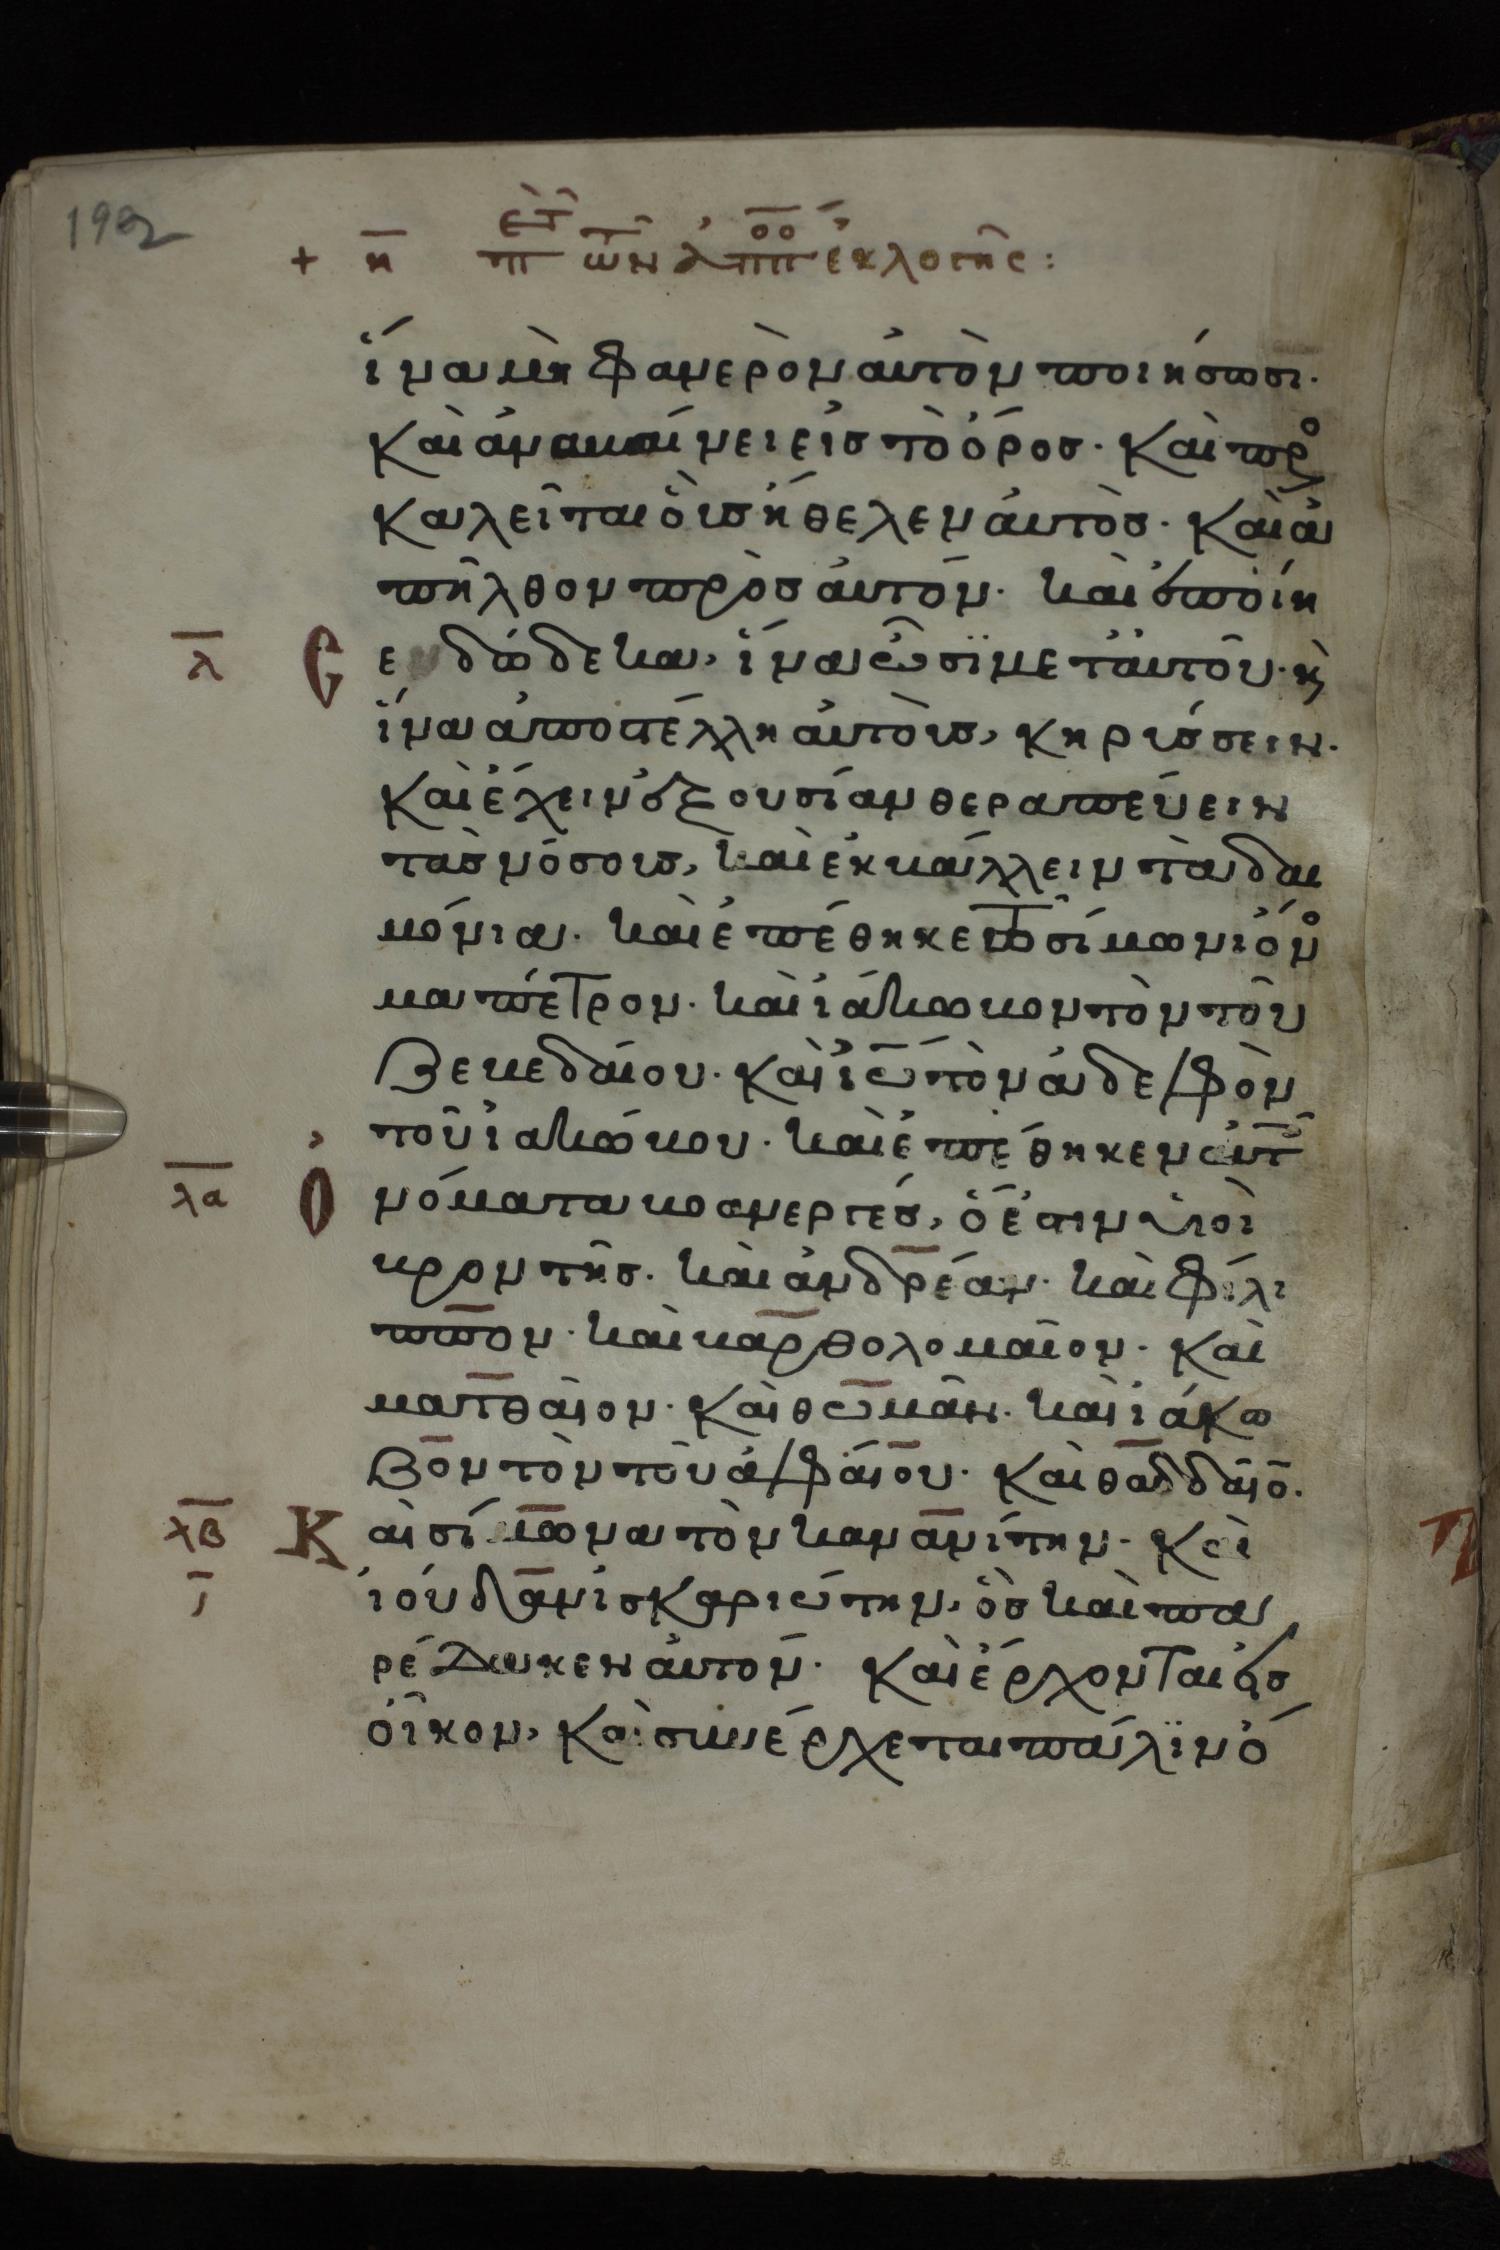 192
+ η πετ των αποο εκλογης:
ἵνα μὴ φανερὸν αὐτὸν ποιήσωσι.
καὶ ἀναβαίνει εἰς τὸ ὄρος. καὶ προ
καλεῖται οὓς ἤθελεν αὐτὸς. καὶ ἀ
πῆλθον πρὸς αὐτόν. καὶ ἐποίη
λ Ϲ ε δώδεκα, ἵνα ὦσϊ μετ' αὐτοῦ. κ̀
ἵνα ἀποστέλλη αὐτοὺς, κηρύσσειν.
καὶ ἔχειν ἐξουσίαν θεραπεύειν
τὰς νόσους, καὶ ἐκβάλλειν τὰ δαι
μόνια. καὶ ἐπέθηκε τῶ σίμωνι ὄνο
μα πέτρον. καὶ ἰάκωβον τὸν τοῦ
ζεβεδαίου. καὶ ἰω τὸν ἀδελφὸν
τοῦ ἰακώβου. καὶ ἐπέθηκεν αὐτ
λα Ὀ νόματα βοανεργές, ὅ ἐστιν υἱοὶ
βροντῆς. καὶ ἀνδρέαν. καὶ φίλι
ππον. καὶ βαρθολομαῖον. καὶ
ματθαῖον. καὶ θωμᾶν. καὶ ἰάκω
βον τὸν τοῦ ἀλφαίου. καὶ θαδδαῖο.
λβ Κ αὶ σίμωνα τὸν κανανίτην. καὶ
ι ἰούδαν ἰσκαριώτην, ὃς καὶ πα
ρέδωκεν αὐτόν. καὶ ἔρχονται εἰς
οἶκον, καὶ συνέρχεται πάλϊν ὁ